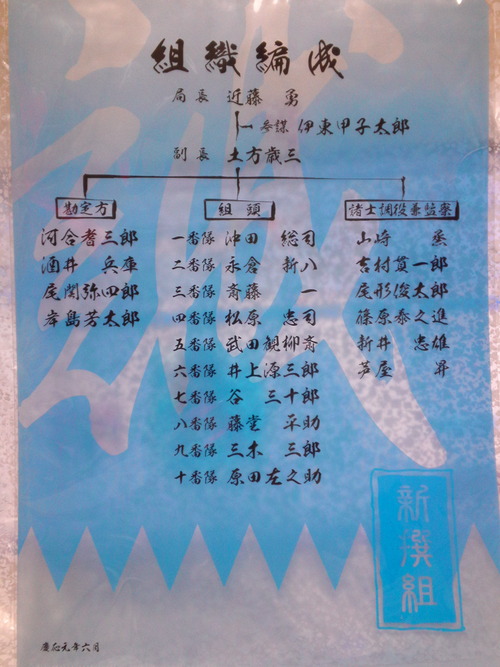 誠
組織編成
局長 近藤 勇
参謀 伊東甲子太郎
副長 土方歳三
勘定方
河合耆三郎
酒井 兵庫
尾関弥四郎
岸島芳太郎
組頭
一番隊 沖田 総司
二番隊 永倉 新八
三番隊 斎藤 一
四番隊 松原 忠司
五番隊 武田観柳斎
六番隊 井上源三郎
七番隊 谷 三十郎
八番隊 藤堂 平助
九番隊 三木 三郎
十番隊 原田左之助
諸士調役兼監察
山崎 烝
吉村貫一郎
尾形俊太郎
篠原泰之進
新井 忠雄
芦屋 昇
新撰組
慶応元年六月